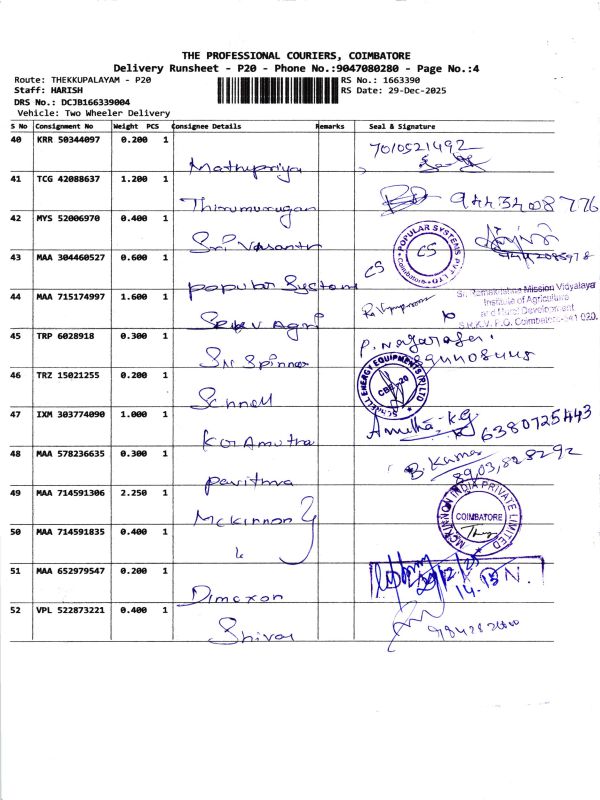 THE PROFESSIONAL COURIERS, COIMBATORE
Delivery Runsheet - P20 - Phone No.:9047080280 - Page No.:4
Route: THEKKUPALAYAM - P20
RS No.: 1663390
Staff: HARISH
RS Date: 29-Dec-2025
DRS No.: DCJB166339004
Vehicle: Two Wheeler Delivery
S No Consignment No Weight PCS Consignee Details Remarks Seal & Signature
40 KRR 50344097 0.200 1
Mathupriya 7010521492
41 TCG 42088637 1.200 1
Thirumurugan
42 MYS 52006970 0.400 1
Sri Vasanth
43 MAA 304460527 0.600 1
Popular Systems CS
POPULAR SYSTEMS PVT LTD Coimbatore CS
44 MAA 715174997 1.600 1
Agri
Sri Ramakrishna Mission Vidyalaya
Institute of Agriculture
and Rural Development
S.R.K.V. P.O. Coimbatore-641 020.
45 TRP 6028918 0.300 1
Sri Spinner P. Nagarajan
46 TRZ 15021255 0.200 1
Schnell
SCHNELL ENERGY EQUIPMENTS (P) LTD CBE-20
47 IXM 303774090 1.000 1
Kor Amutha Amutha K.G 6380725443
48 MAA 578236635 0.300 1
Pavithra B. Kumar 8903,828292
49 MAA 714591306 2.250 1
Mckinnon
MCKINNON INDIA PRIVATE LIMITED COIMBATORE
50 MAA 714591835 0.400 1
51 MAA 652979547 0.200 1
Dimexon 29/12/25
14.15
52 VPL 522873221 0.400 1
Shivar